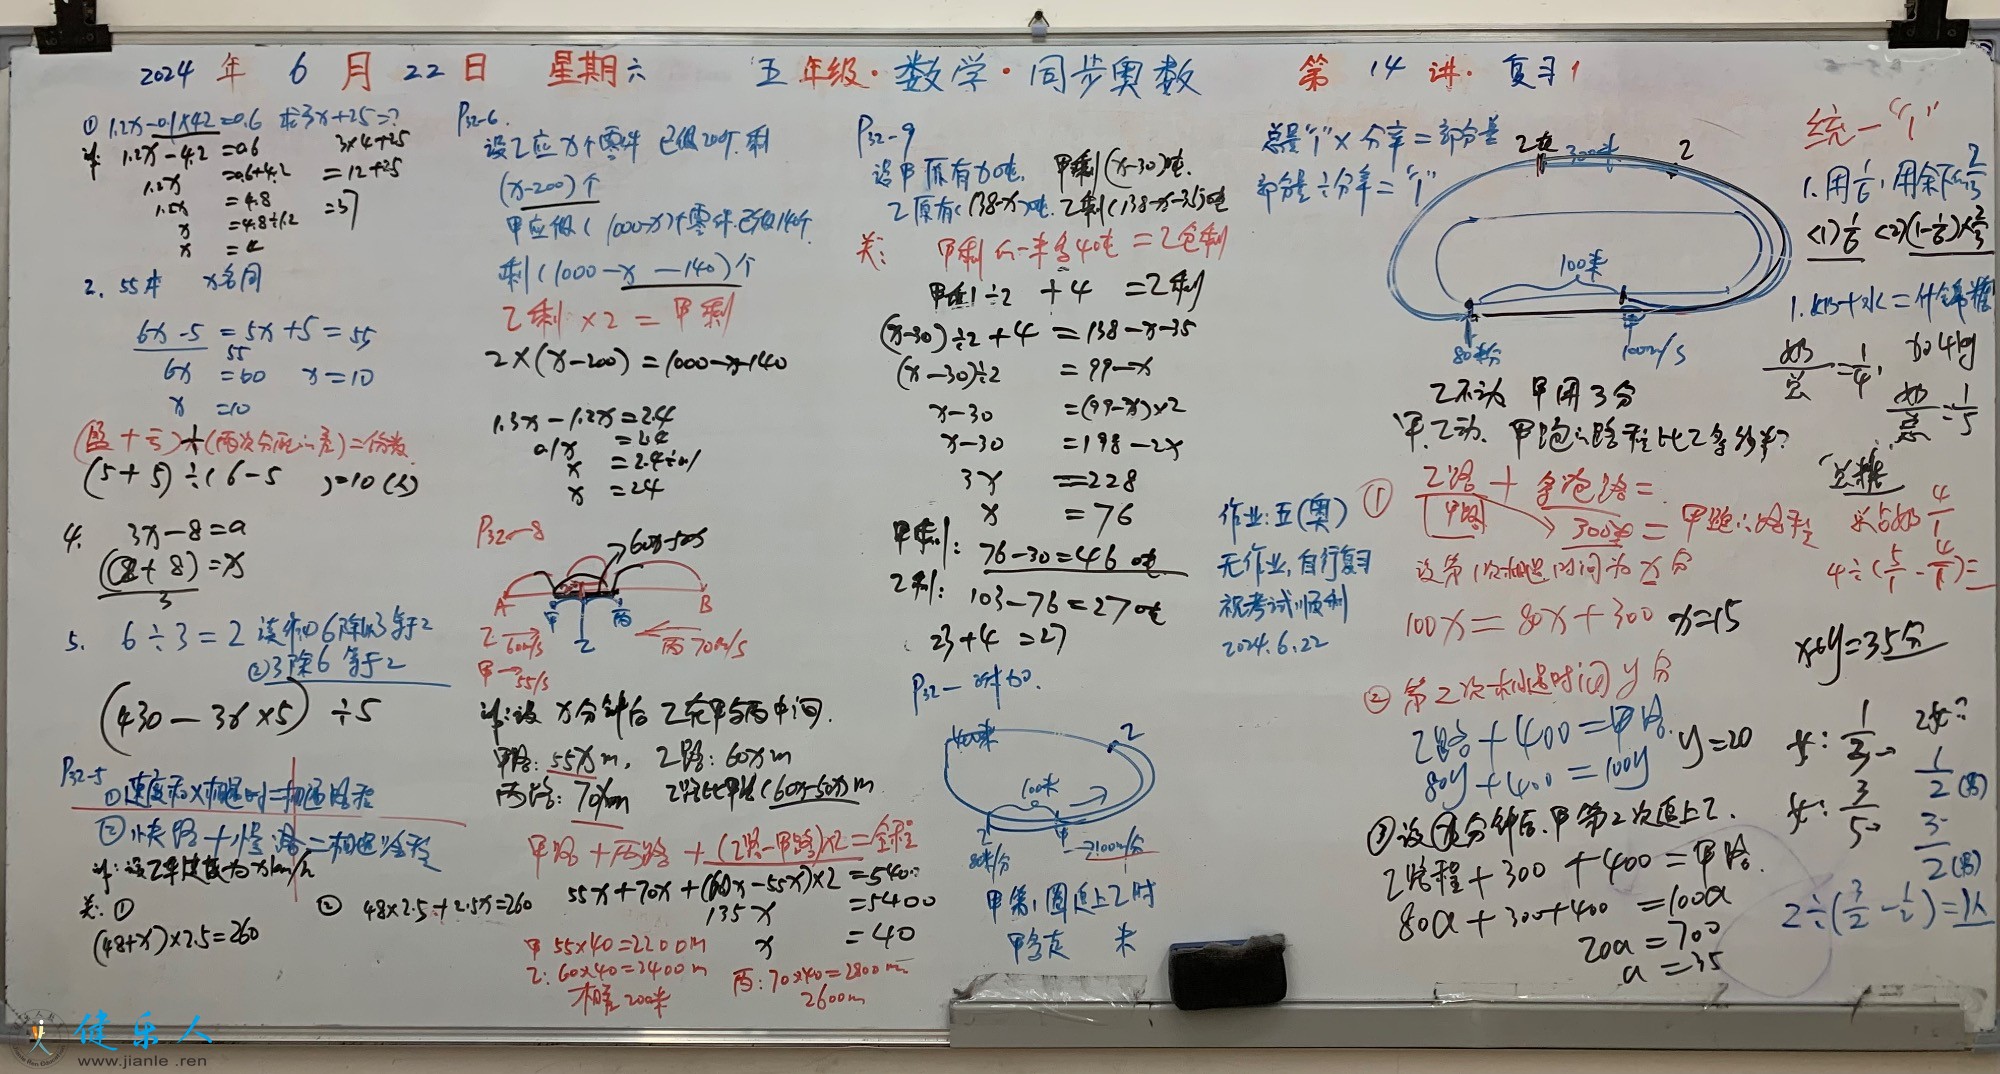 2024 年 6 月 22 日 星期六 五年级·数学·同步奥数 第 14 讲· 复习1
① 1.2x-0.1×42=0.6 求3x+25=?
1.2x-4.2=0.6
1.2x=0.6+4.2
1.2x=4.8
x=4.8÷1.2
x=4
3×4+25
=12+25
=37
2. 55本 x名同
6x-5=5x+5=55
55
6x=60 x=10
x=10
(盈+亏)÷(两次分配之差)=份数
(5+5)÷(6-5)=10(人)
4. 3x-8=a
(a+8)=x
3
5. 6÷3=2 读作①6除以3等于2
②3除6等于2
(430-3x×5)÷5
P32-5
①速度和×相遇时=相遇路程
②快路+慢路=相遇路程
设乙车速度为xkm/h
关:①
(48+x)×2.5=260
② 48×2.5+2.5x=260
P32-6.
设乙应x个零件 已做200个.剩
(x-200)个
甲应做(1000-x)个零件.已做140个.
剩(1000-x-140)个
乙剩×2=甲剩
2×(x-200)=1000-x-140
1.3x-1.2x=2.4
0.1x=2.4
x=2.4÷0.1
x=24
P32-8
60x-50x
A 甲 乙 丙 B
乙 60m/s 丙 70m/s
甲→55/s
设x分钟后乙在甲与丙中间.
甲路:55xm, 乙路:60xm
丙路:70xm 乙路比甲路(60x-50x)m
甲路+丙路+(乙路-甲路)×2=全程
55x+70x+(60x-55x)×2=5400
135x=5400
x=40
甲 55×40=2200m
乙:60×40=2400m
相差200米
丙:70×40=2800m
2600m
P32-9
设甲原有x吨. 甲剩(x-30)吨.
乙原有(138-x)吨. 乙剩(138-x-35)吨
关: 甲剩的一半多4吨=乙仓剩
甲剩÷2+4=乙剩
(x-30)÷2+4=138-x-35
(x-30)÷2=99-x
x-30=(99-x)×2
x-30=198-2x
3x=228
x=76
甲剩: 76-30=46吨
乙剩: 103-76=27吨
23+4=27
P32-附加.
400米
乙
100米
乙 甲
80米/分 →100m/分
甲第1圈追上乙时
甲多走 米
总量"1"×分率=部分量
部分量÷分率="1"
作业:五(奥)
无作业,自行复习
祝考试顺利
2024.6.22
300米 乙
100米
80米/分 100m/s
乙不动 甲用3分
甲.乙动. 甲跑的路程比乙多多少米?
① 乙路+多跑路=
甲路 300米=甲跑的路程
设第1次相遇时间为x分
100x=80x+300 x=15
② 第2次相遇时间y分
乙路+400=甲路.
80y+400=100y y=20
x+y=35分
③设a分钟后.甲第2次追上乙.
乙路程+300+400=甲路.
80a+300+400=100a
20a=700
a=35
统一"1"
1.用1/6,用余下的2/3
<1>1/6 <2>(1-1/6)×2/3
奶/总=1/4, 加4kg
奶/总=1/5
4÷(5/1-4/1)=
女:1/3 2女?
女:3/5
1/2(男)
3/2(男)
2÷(3/2-1/2)=1人
健乐人
www.jianle.ren